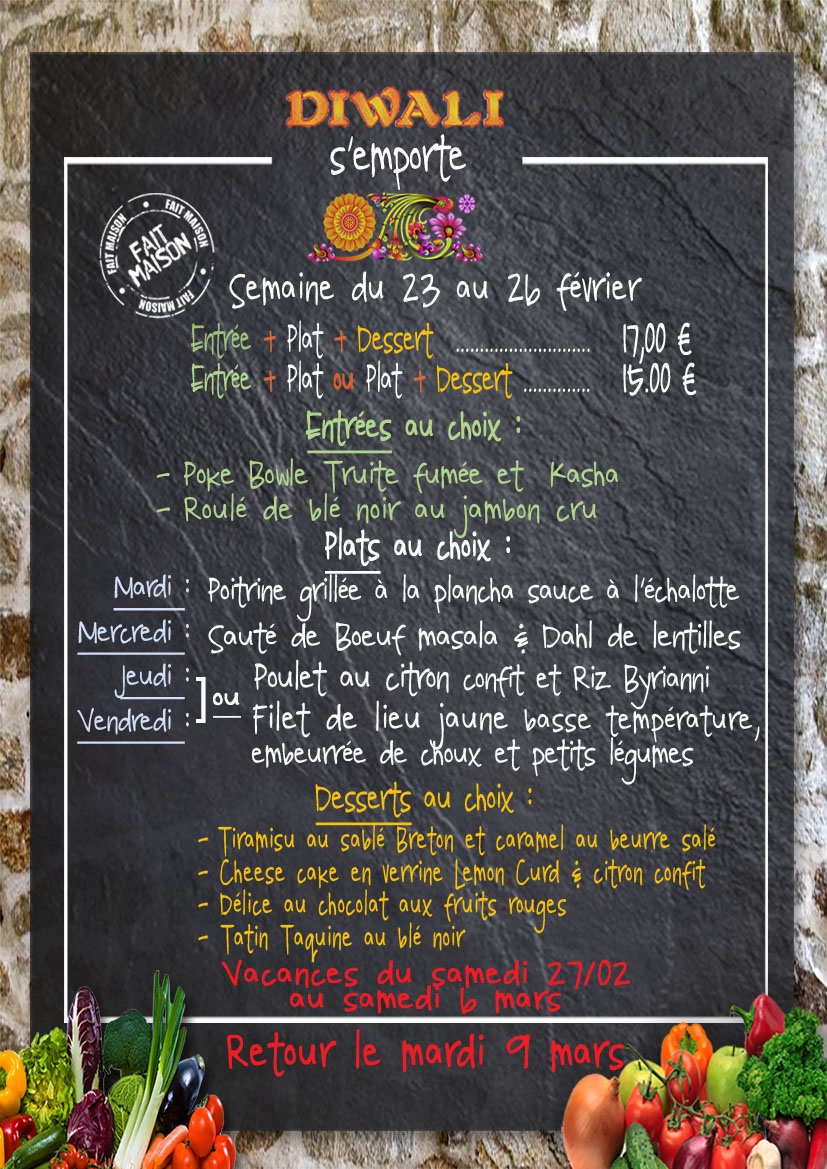 DIWALI
s'emporte
FAIT MAISON
FAIT MAISON
FAIT MAISON
FAIT MAISON
Semaine du 23 au 26 février
Entrée + Plat + Dessert ............................ 17,00 €
Entrée + Plat ou Plat + Dessert .............. 15.00 €
Entrées au choix :
- Poke Bowle Truite fumée et Kasha
- Roulé de blé noir au jambon cru
Plats au choix :
Mardi : Poitrine grillée à la plancha sauce à l'échalotte
Mercredi : Sauté de Boeuf masala & Dahl de lentilles
Jeudi : Poulet au citron confit et Riz Byrianni
ou
Vendredi : Filet de lieu jaune basse température,
embeurrée de choux et petits légumes
Desserts au choix :
- Tiramisu au sablé Breton et caramel au beurre salé
- Cheese cake en verrine Lemon Curd & citron confit
- Délice au chocolat aux fruits rouges
- Tatin Taquine au blé noir
Vacances du samedi 27/02
au samedi 6 mars
Retour le mardi 9 mars